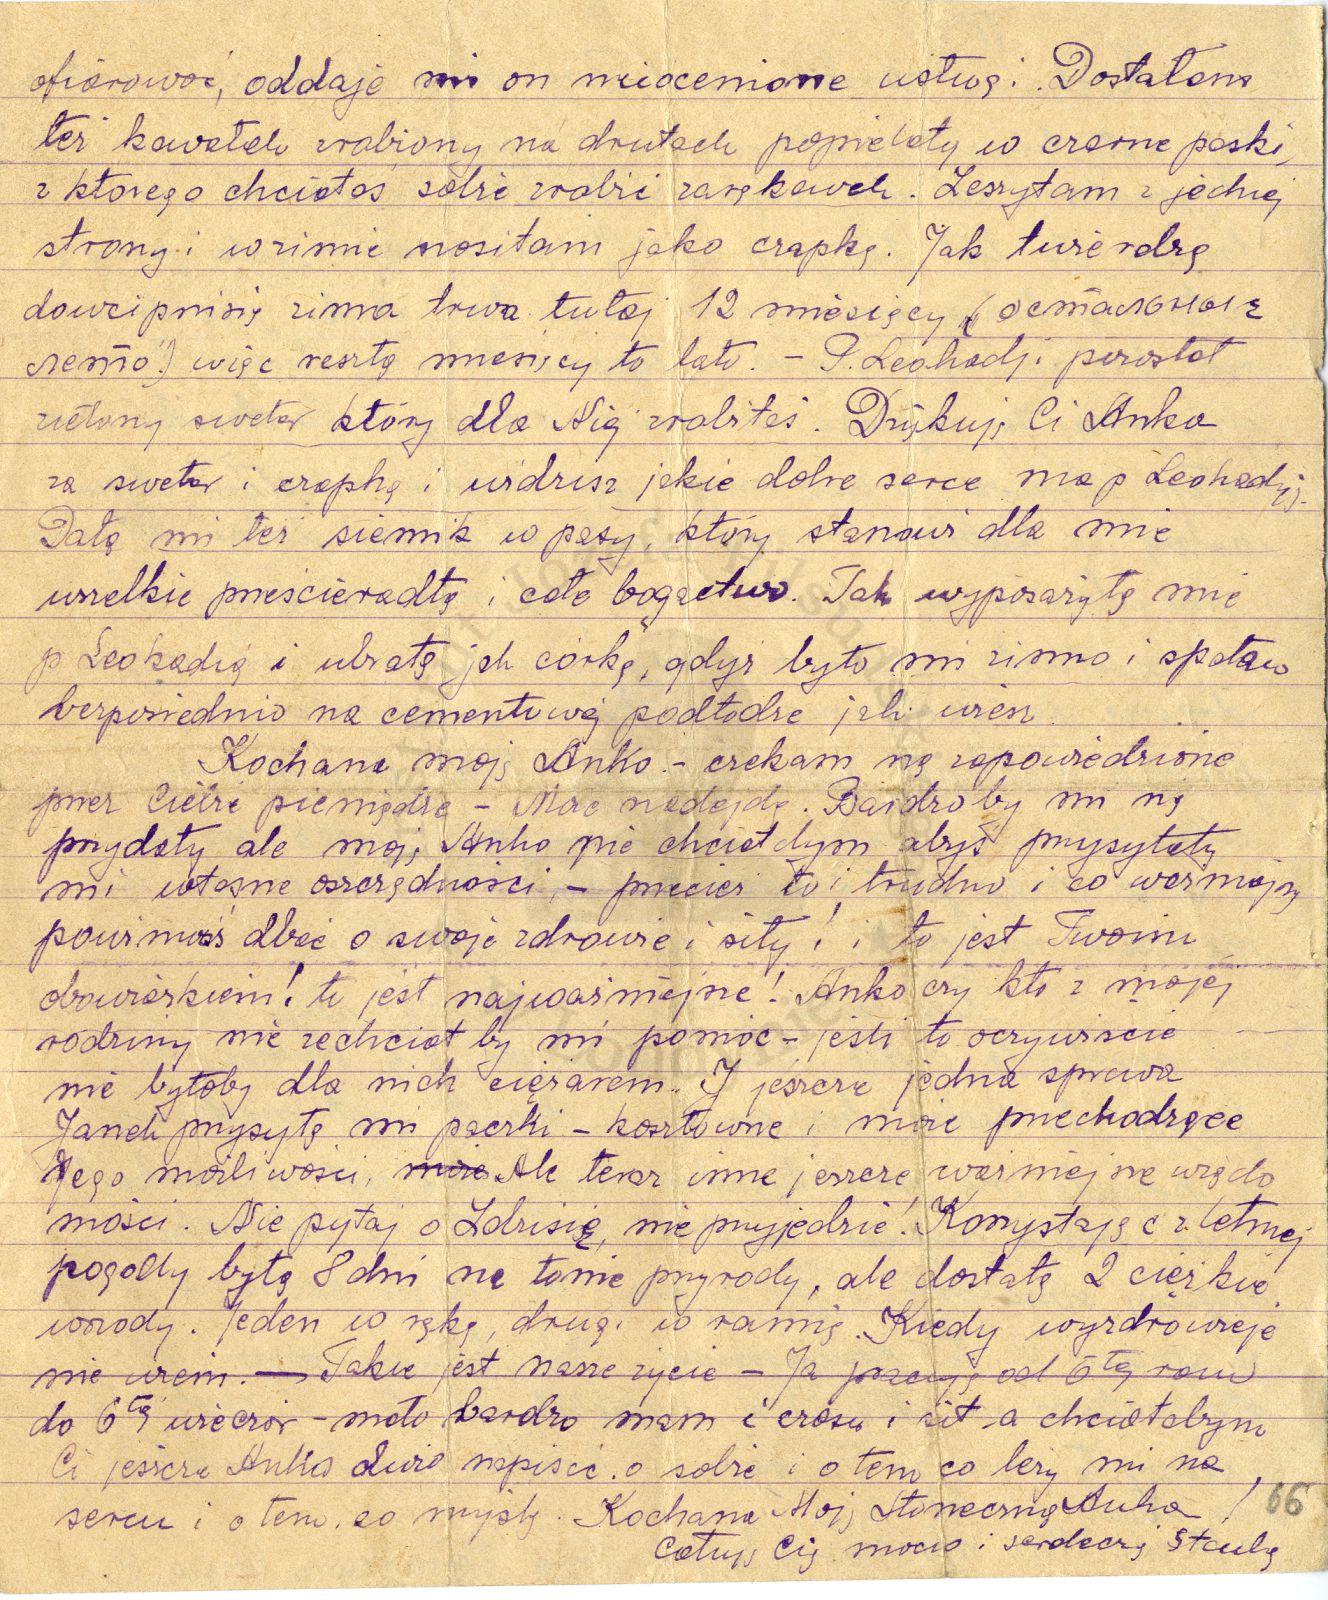 ofiarować, oddaje mi on nieocenione usługi. Dostałam
też kawałek zrobiony na drutach popielaty w czarne paski,
z którego chciałaś sobie zrobić zarękawek. Zeszyłam z jednej
strony i w zimie nosiłam jako czapkę. Jak twierdzą
dowcipnisie zima trwa tutaj 12 miesięcy (остальные
лето) więc resztę miesięcy to lato. – P. Leokadji pozostał
zielony sweter który dla Niej zrobiłaś. Dziękuję Ci Anko
za sweter i czapkę i widzisz jakie dobre serce ma p Leokadja.
Dała mi też siennik w pasy, który stanowi dla mnie
wszelkie prześcieradła i całe bogactwo. Tak wyposażyła mnie
p Leokadia i ubrała jak córkę, gdyż było mi zimno i spałam
bezpośrednio na cementowej podłodze jak wiesz
Kochana moja Anko – czekam na zapowiedziane
przez Ciebie pieniądze – Mam nadzieję. Bardzo by mi się
przydały ale moja Anko nie chciałabym abyś przysyłała
mi własne oszczędności, – przecież to i trudno i co ważniejsze
powinnaś dbać o swoje zdrowie i siły! i to jest Twoim
obowiązkiem! to jest najważniejsze! Anko czy kto z mojej
rodziny nie zechciał by mi pomóc – jeśli to oczywiście
nie byłoby dla nich ciężarem. I jeszcze jedna sprawa
Janek przysyła mi paczki – kosztowne i może przechodzące
Jego możliwości, Ale teraz inne jeszcze ważniejsze wiado
mości. Nie pytaj o Zdzisię, nie przyjedzie! Korzystając z letniej
pogody była 8 dni na łonie przyrody, ale dostała 2 ciężkie
wrzody. Jeden w rękę, drugi w ramię. Kiedy wyzdrowieje
nie wiem. — Takie jest nasze życie – Ja pracuję od 6tej rano
do 6tej wieczór – mało bardzo mam i czasu i sił a chciałabym
Ci jeszcze Anko dużo napisać o sobie i o tem co leży mi na
sercu i o tem co myślę. Kochana Moja Słoneczna Anko!
Całuję Cię mocno i serdecznie
66